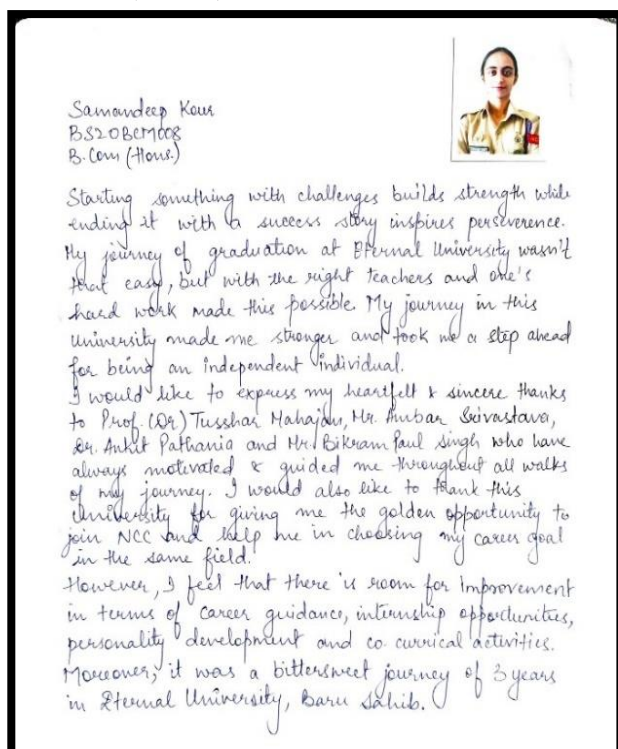 Samandeep Kour
BS20BCM008
B.Com (Hons.)
Starting something with challenges builds strength while
ending it with a success story inspires perseverence.
My journey of graduation at Eternal University wasn't
that easy, but with the right teachers and one's
hard work made this possible. My journey in this
University made me stronger and took me a step ahead
for being an independent individual.
I would like to express my heartfelt & sincere thanks
to Prof. (Dr) Tusshar Mahajan, Mr. Ambar Srivastava,
Dr. Ankit Pathania and Mr. Bikram Paul Singh who have
always motivated & guided me throughout all walks
of my journey. I would also like to thank this
University for giving me the golden opportunity to
join NCC and help me in choosing my career goal
in the same field.
However, I feel that there is room for improvement
in terms of career guidance, internship opportunities,
personality development and co. currical activities.
Moreover, it was a bittersweet journey of 3 years
in Eternal University, Baru Sahib.